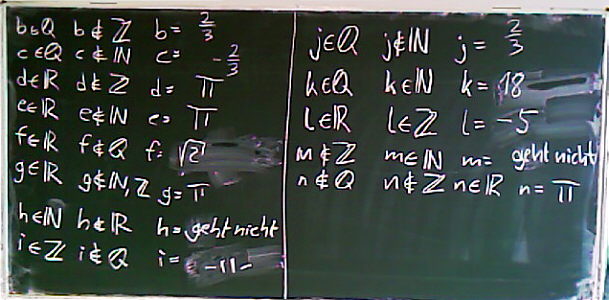 b∈ℚ b∉ℤ b= 2/3
c∈ℚ c∉ℕ c= -2/3
d∈ℝ d∉ℤ d= π
e∈ℝ e∉ℕ e= π
f∈ℝ f∉ℚ f= √2
g∈ℝ g∉ℕ,ℤ g= π
h∈ℕ h∉ℝ h= geht nicht
i∈ℤ i∉ℚ i= -11-
j∈ℚ j∉ℕ j= 2/3
k∈ℚ k∈ℕ k= 18
l∈ℝ l∈ℤ l= -5
m∉ℤ m∈ℕ m= geht nicht
n∉ℚ n∉ℤ n∈ℝ n= π